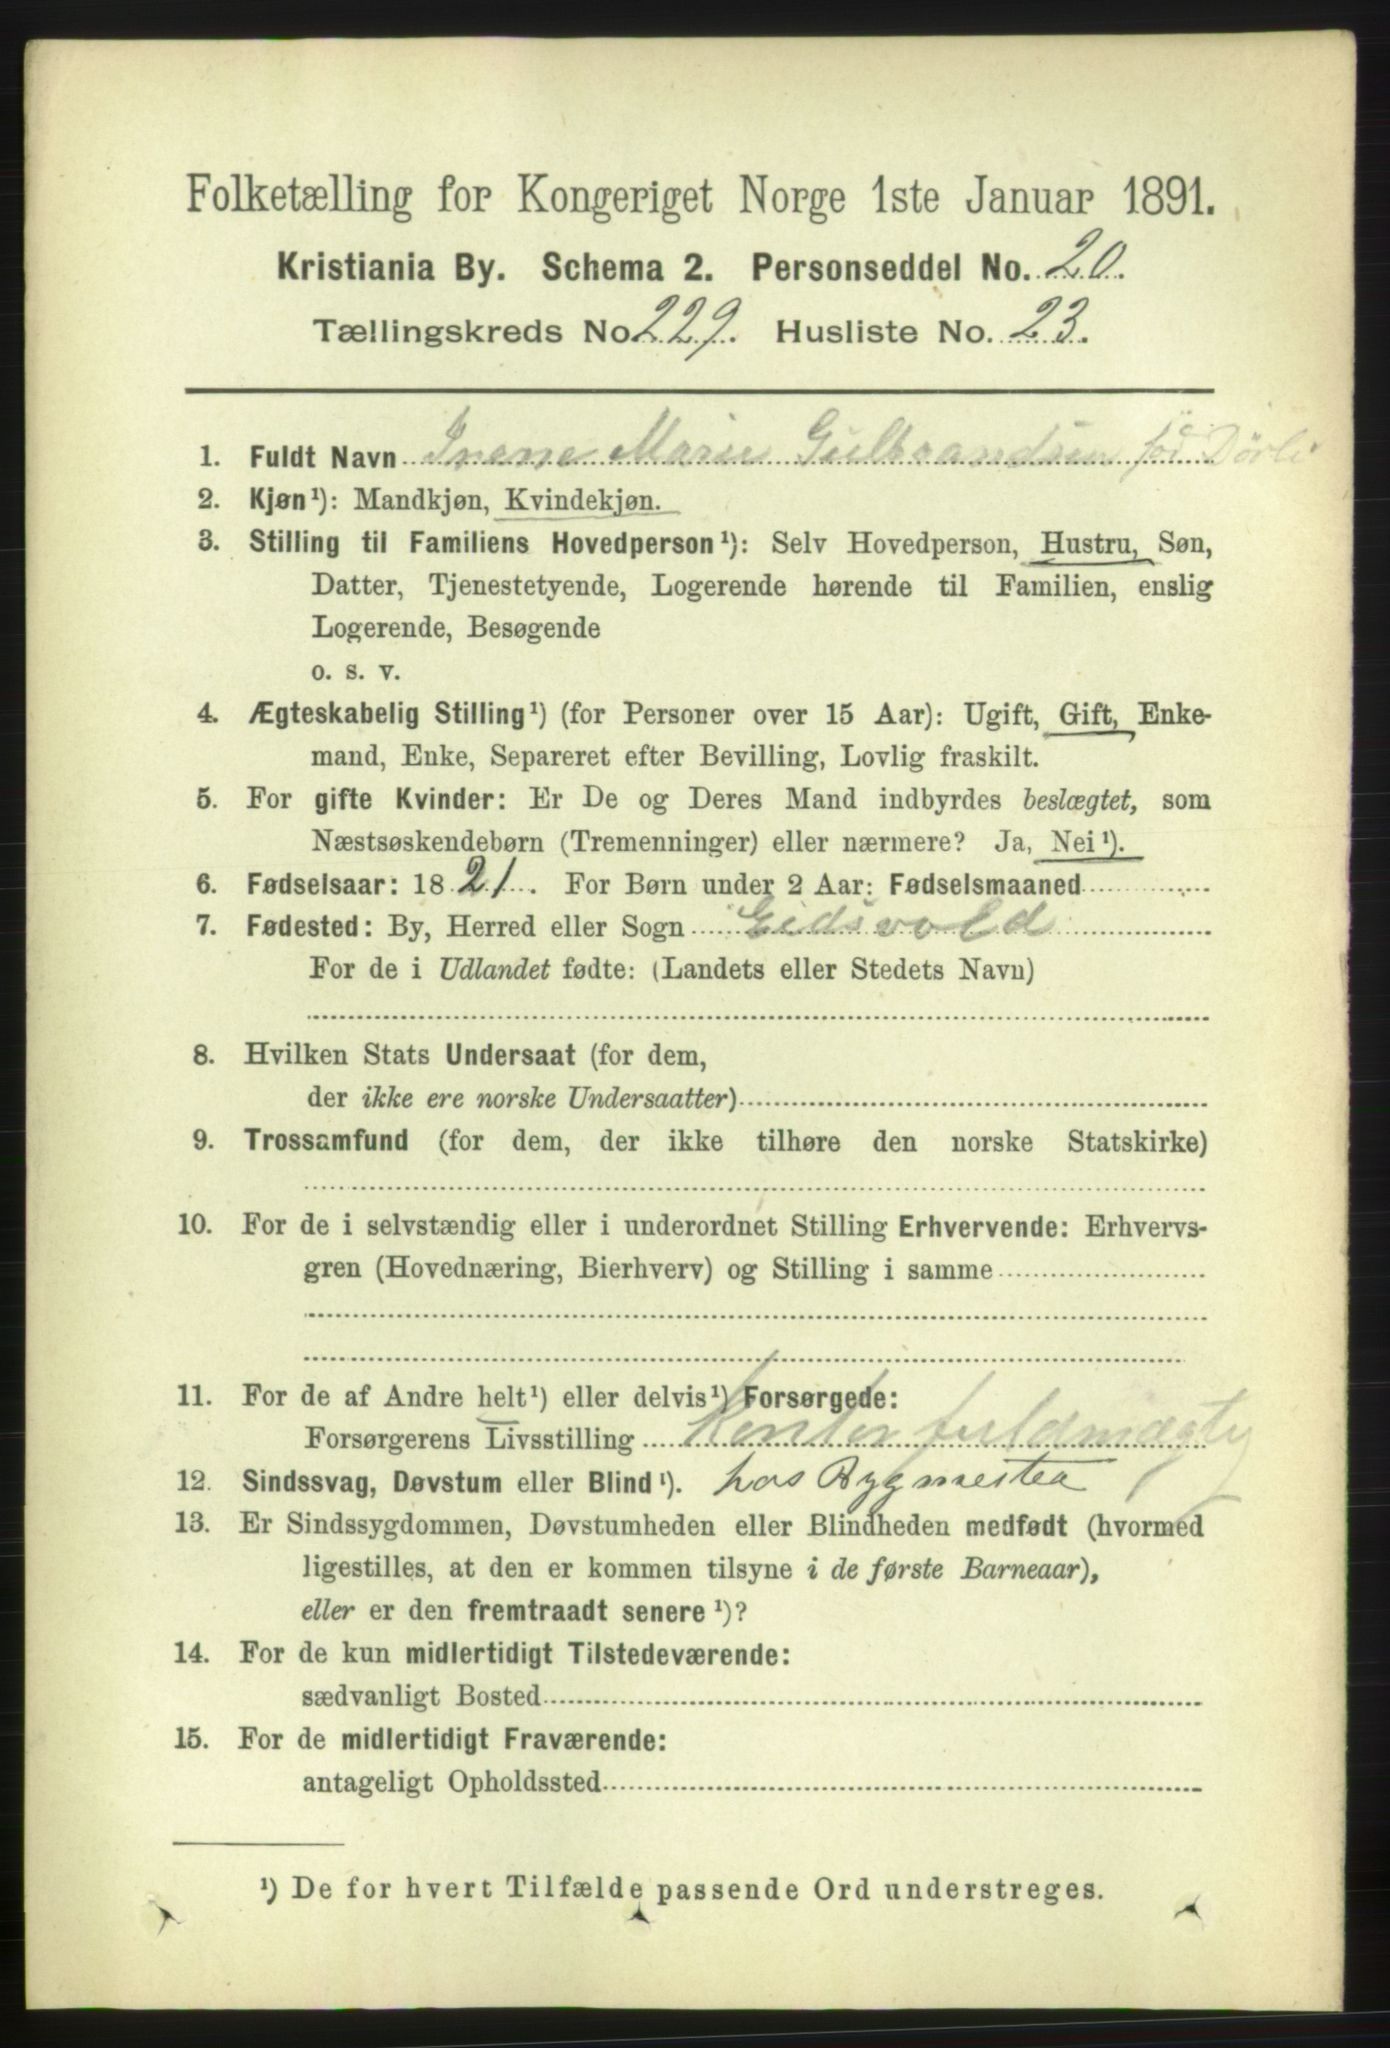 Folketælling for Kongeriget Norge 1ste Januar 1891.
Kristiania By. Schema 2. Personseddel No. 20.
Tællingskreds No. 229. Husliste No. 23.
1. Fuldt Navn Irene Marie Gulbrandsen fød Dørli
2. Kjøn¹): Mandkjøn, Kvindekjøn.
3. Stilling til Familiens Hovedperson¹): Selv Hovedperson, Hustru, Søn,
Datter, Tjenestetyende, Logerende hørende til Familien, enslig
Logerende, Besøgende
o. s. v.
4. Ægteskabelig Stilling¹) (for Personer over 15 Aar): Ugift, Gift, Enke-
mand, Enke, Separeret efter Bevilling, Lovlig fraskilt.
5. For gifte Kvinder: Er De og Deres Mand indbyrdes beslægtet, som
Næstsøskendebørn (Tremenninger) eller nærmere? Ja, Nei¹).
6. Fødselsaar: 1821. For Børn under 2 Aar: Fødselsmaaned
7. Fødested: By, Herred eller Sogn Eidsvold
For de i Udlandet fødte: (Landets eller Stedets Navn)
8. Hvilken Stats Undersaat (for dem,
der ikke ere norske Undersaatter)
9. Trossamfund (for dem, der ikke tilhøre den norske Statskirke)
10. For de i selvstændig eller i underordnet Stilling Erhvervende: Erhvervs-
gren (Hovednæring, Bierhverv) og Stilling i samme
11. For de af Andre helt¹) eller delvis¹) Forsørgede:
Forsørgerens Livsstilling Kontorfuldmægtig
12. Sindssvag, Døvstum eller Blind¹). hos Bygmester
13. Er Sindssygdommen, Døvstumheden eller Blindheden medfødt (hvormed
ligestilles, at den er kommen tilsyne i de første Barneaar),
eller er den fremtraadt senere¹)?
14. For de kun midlertidigt Tilstedeværende:
sædvanligt Bosted
15. For de midlertidigt Fraværende:
antageligt Opholdssted
¹) De for hvert Tilfælde passende Ord understreges.